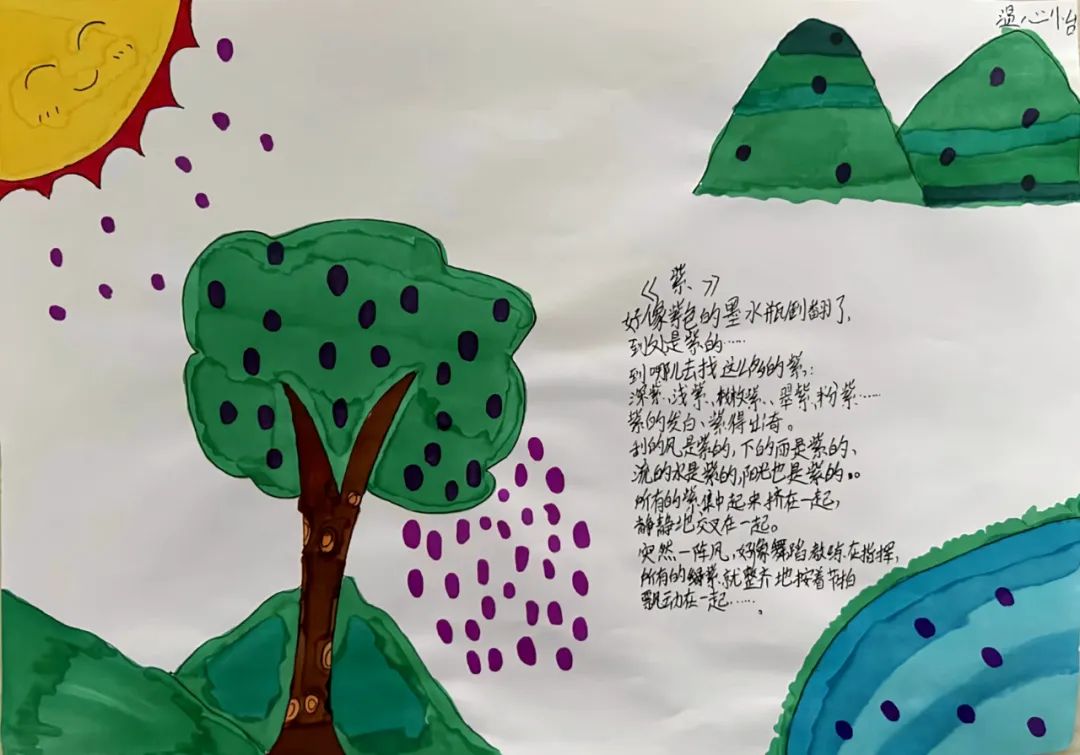 温心怡
《紫》
好像紫色的墨水瓶倒翻了,
到处是紫的……
到哪儿去找这么多的紫:
深紫、浅紫、嫩紫、翠紫、粉紫……
紫的发白、紫得出奇。
刮的风是紫的,下的雨是紫的、
流的水是紫的,阳光也是紫的。
所有的紫集中起来挤在一起,
静静地交叉在一起。
突然一阵风,好像舞蹈教练在指挥,
所有的紫就整齐地按着节拍
飘动在一起……。